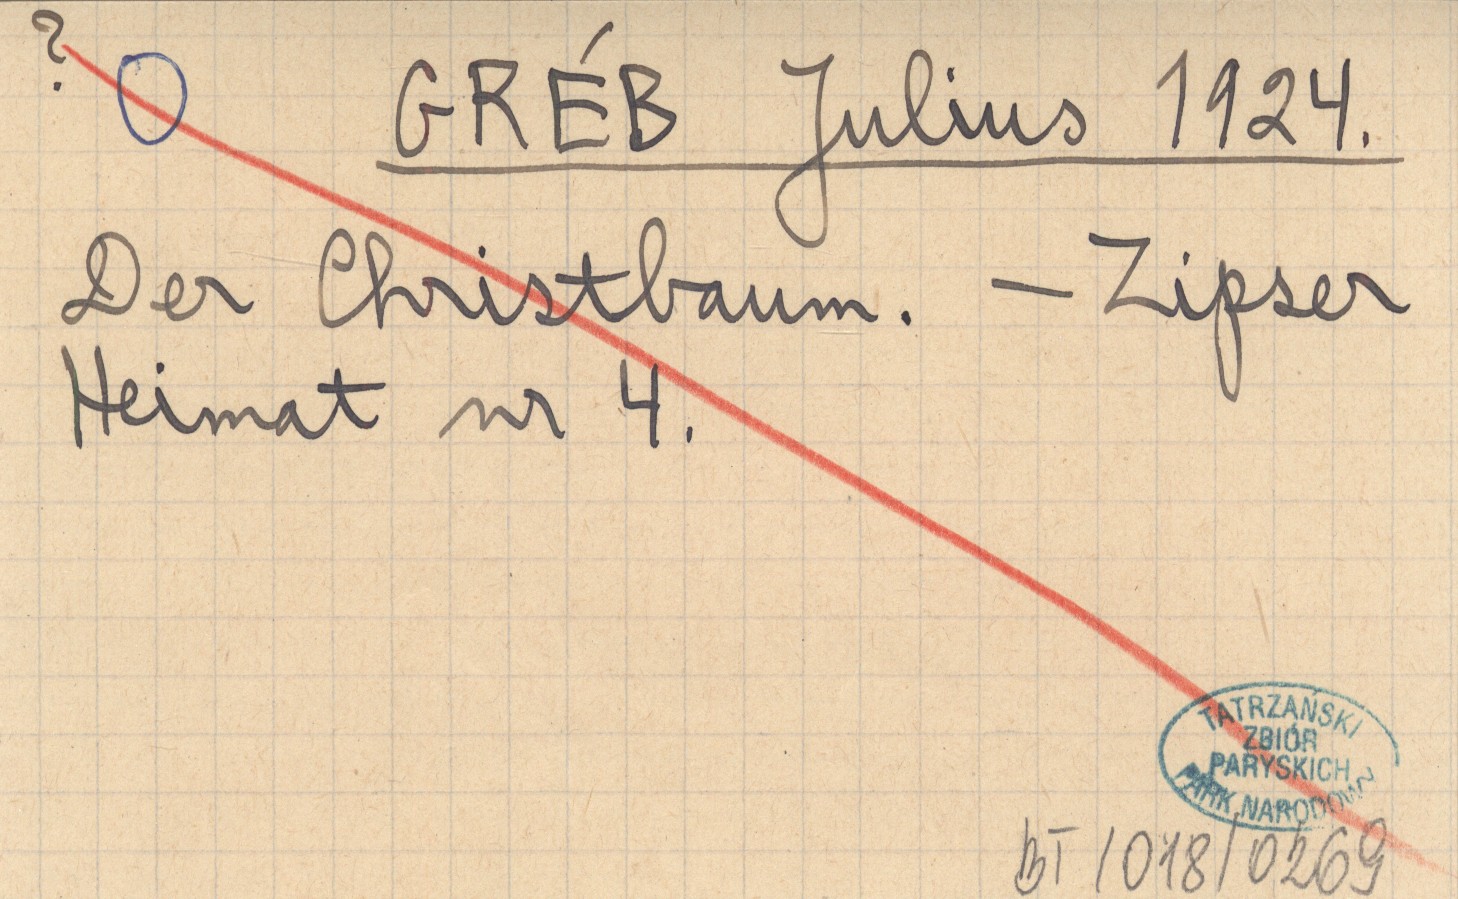 ?
GRÉB Julius 1924.
Der Christbaum. — Zipser
Heimat nr 4.
TATRZAŃSKI
ZBIÓR
PARYSKICH
PARK NARODOWY
BT/018/0269